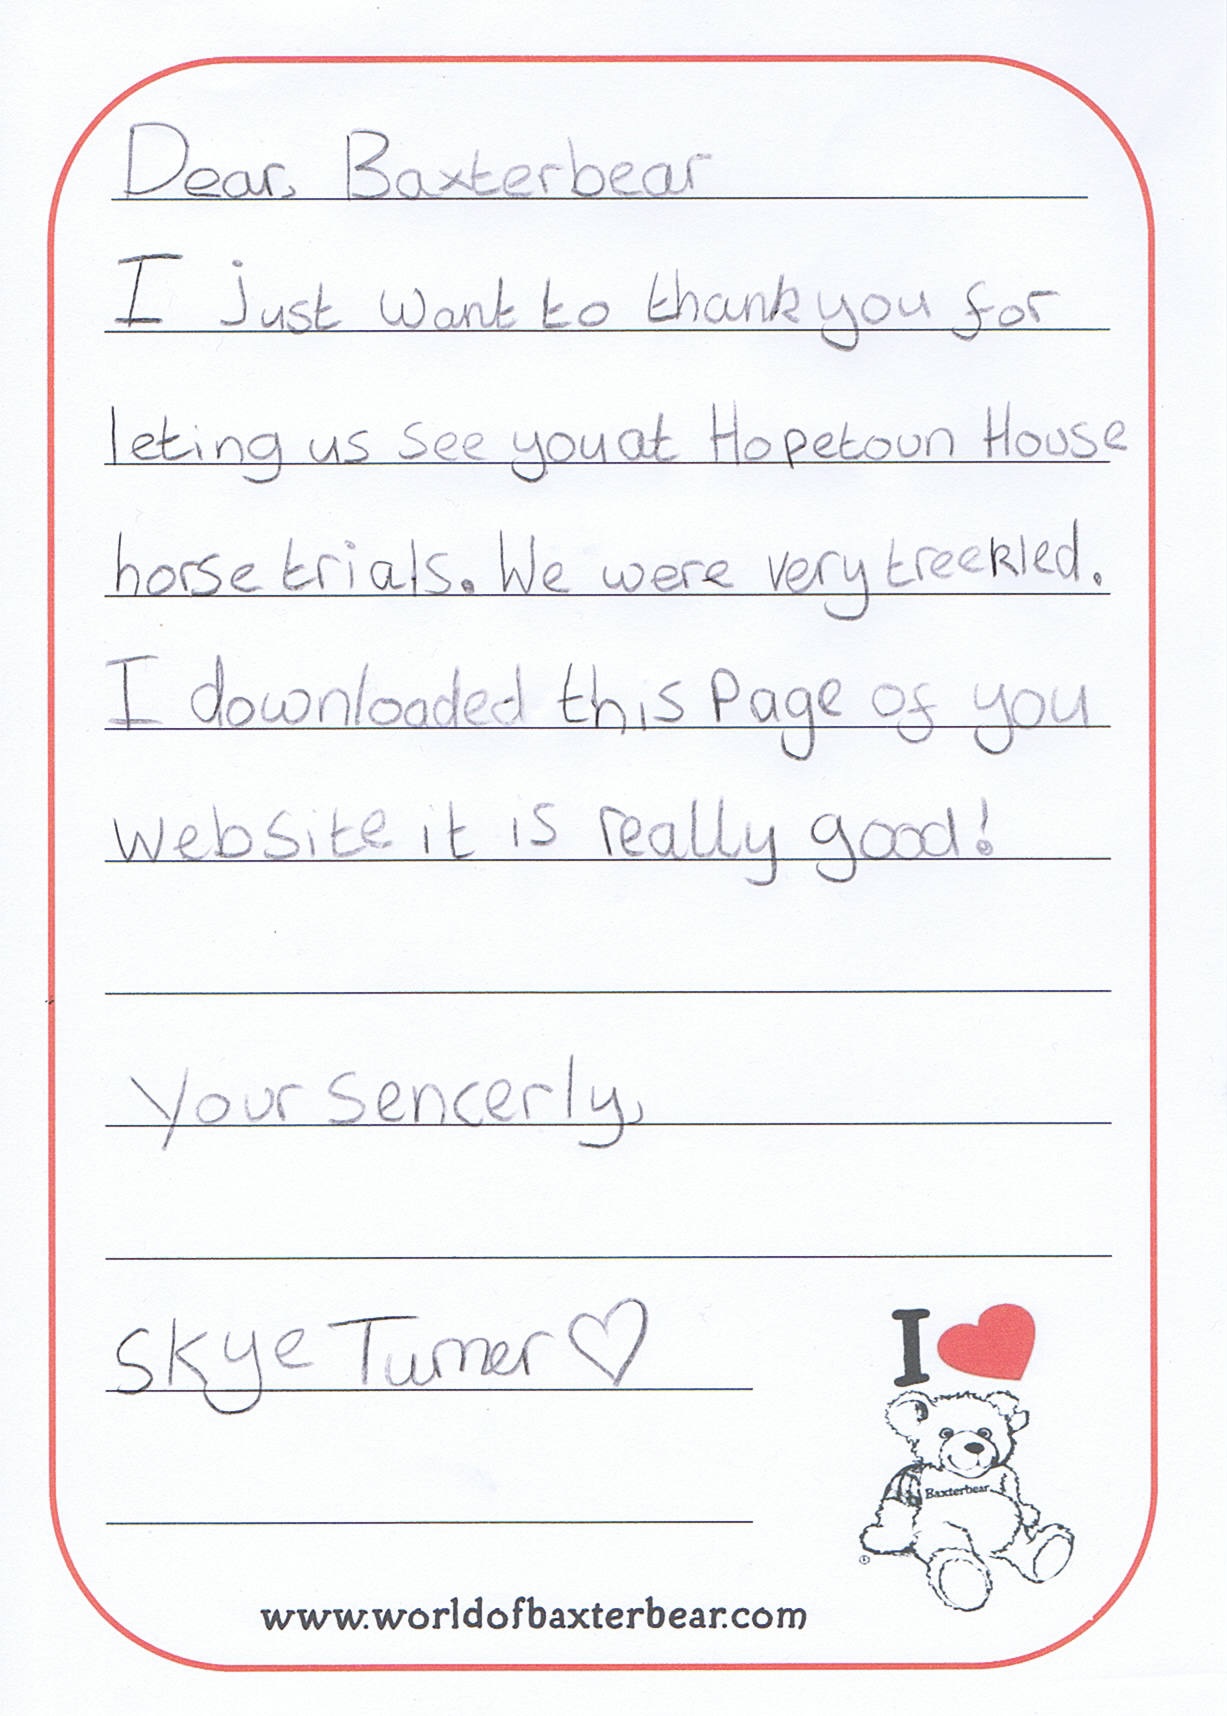 Dear, Baxterbear
I just want to thank you for
leting us see you at Hopetoun House
horse trials. We were very treekled.
I downloaded this Page of you
website it is really good!
Your sencerly,
Skye Turner ♡
I ♥
Baxterbear
www.worldofbaxterbear.com